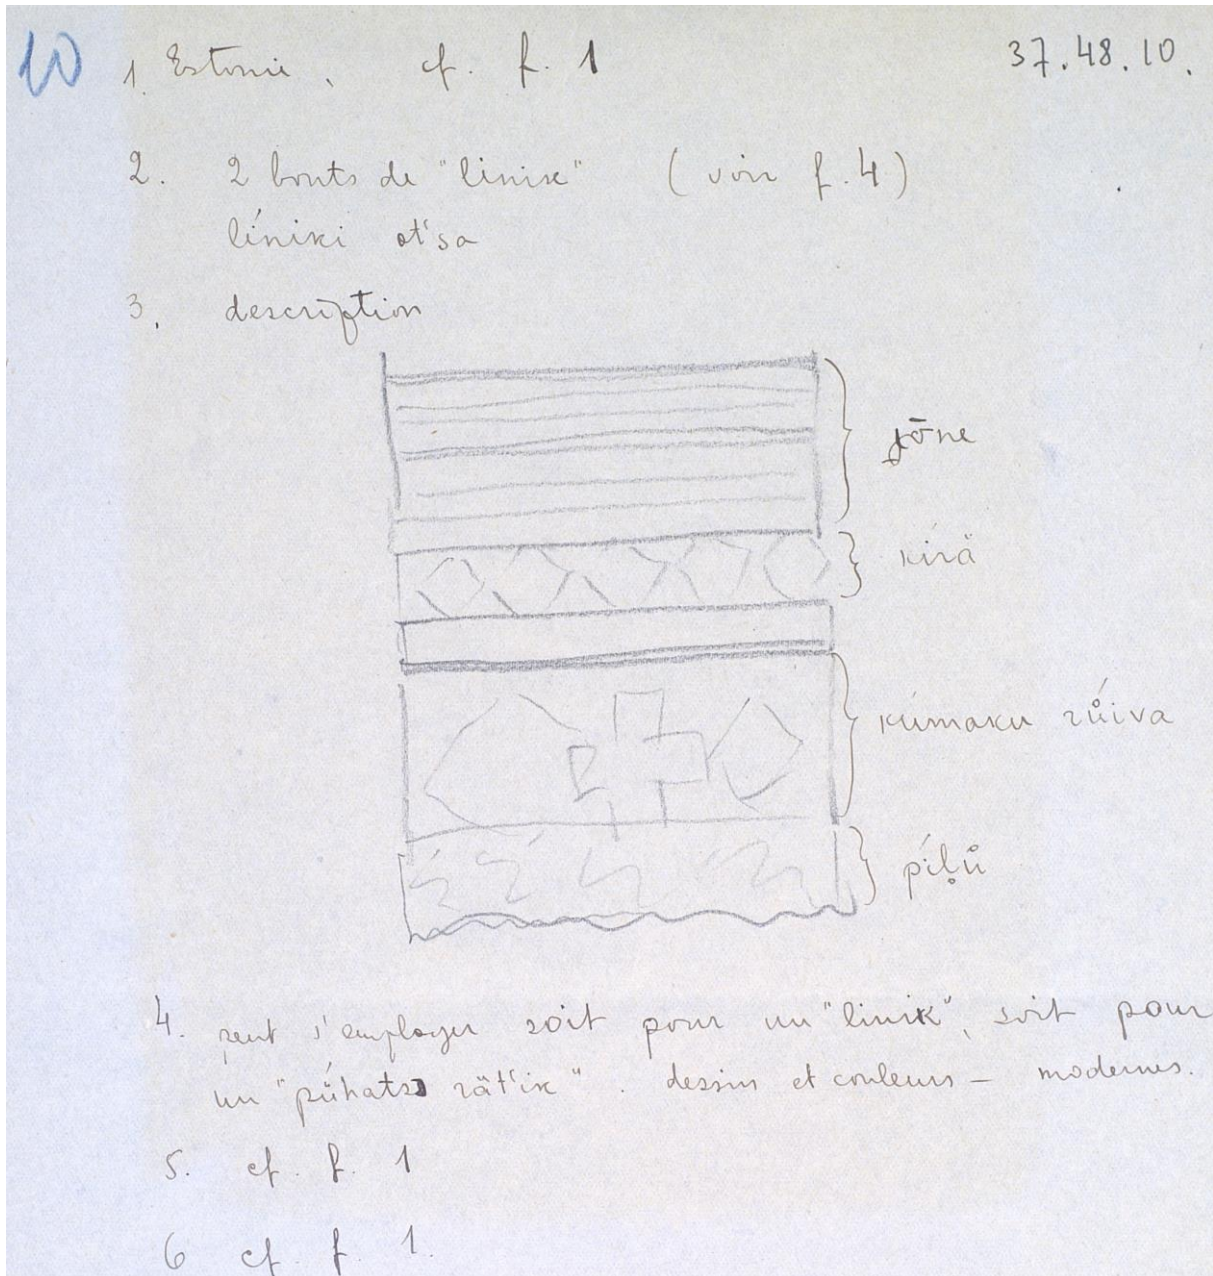 10 1. Estonie, cf. f. 1 37.48.10.
2. 2 bouts de "linik" (voir f. 4)
líniki ot'sa
3. description
jōne
kirä
kúmaku rů́iva
píl̥ů
4. peut s'employer soit pour un "linik", soit pour
un "pühatsə rät'ik". dessins et couleurs – modernes.
5. cf. f. 1
6 cf. f. 1.